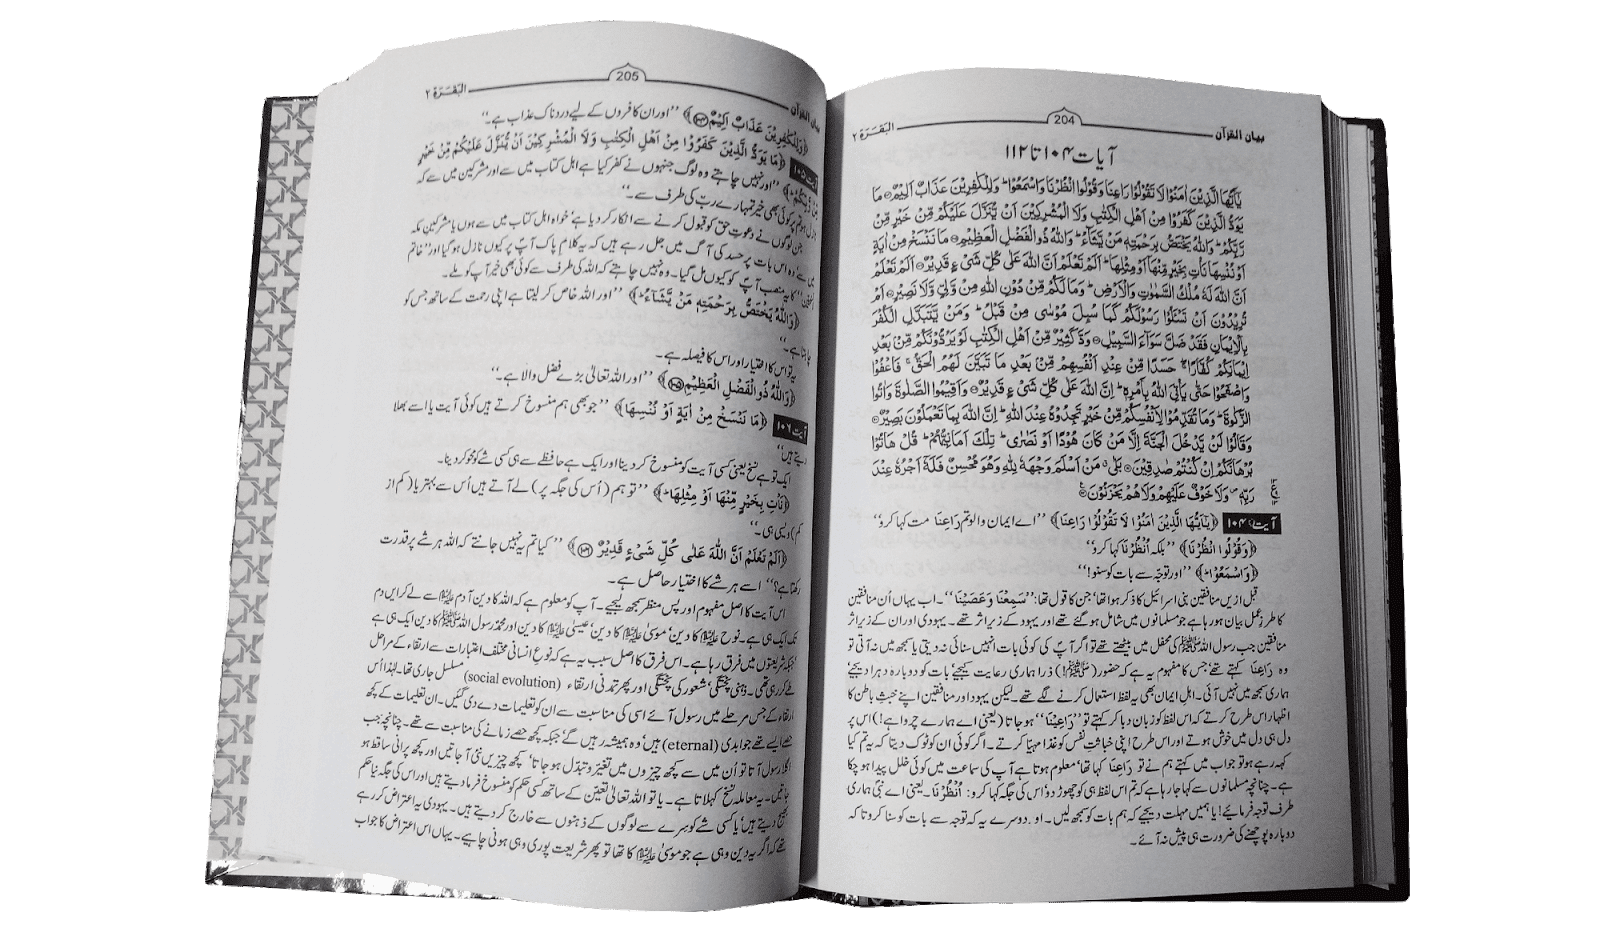 بیان القرآن 204 البَقَرَة ۲
آیات ۱۰۴ تا ۱۱۲
يٰٓاَيُّهَا الَّذِيْنَ اٰمَنُوْا لَا تَقُوْلُوْا رَاعِنَا وَقُوْلُوا انْظُرْنَا وَاسْمَعُوْا ؕ وَلِلْكٰفِرِيْنَ عَذَابٌ اَلِيْمٌ۝ مَا
يَوَدُّ الَّذِيْنَ كَفَرُوْا مِنْ اَهْلِ الْكِتٰبِ وَلَا الْمُشْرِكِيْنَ اَنْ يُّنَزَّلَ عَلَيْكُمْ مِّنْ خَيْرٍ مِّنْ
رَّبِّكُمْ ؕ وَاللّٰهُ يَخْتَصُّ بِرَحْمَتِهٖ مَنْ يَّشَآءُ ؕ وَاللّٰهُ ذُو الْفَضْلِ الْعَظِيْمِ۝ مَا نَنْسَخْ مِنْ اٰيَةٍ
اَوْ نُنْسِهَا نَاْتِ بِخَيْرٍ مِّنْهَآ اَوْ مِثْلِهَا ؕ اَلَمْ تَعْلَمْ اَنَّ اللّٰهَ عَلٰى كُلِّ شَيْءٍ قَدِيْرٌ۝ اَلَمْ تَعْلَمْ
اَنَّ اللّٰهَ لَهٗ مُلْكُ السَّمٰوٰتِ وَالْاَرْضِ ؕ وَمَا لَكُمْ مِّنْ دُوْنِ اللّٰهِ مِنْ وَّلِيٍّ وَّلَا نَصِيْرٍ۝ اَمْ
تُرِيْدُوْنَ اَنْ تَسْئَلُوْا رَسُوْلَكُمْ كَمَا سُئِلَ مُوْسٰى مِنْ قَبْلُ ؕ وَمَنْ يَّتَبَدَّلِ الْكُفْرَ
بِالْاِيْمَانِ فَقَدْ ضَلَّ سَوَآءَ السَّبِيْلِ۝ وَدَّ كَثِيْرٌ مِّنْ اَهْلِ الْكِتٰبِ لَوْ يَرُدُّوْنَكُمْ مِّنْۢ بَعْدِ
اِيْمَانِكُمْ كُفَّارًا ۚ حَسَدًا مِّنْ عِنْدِ اَنْفُسِهِمْ مِّنْۢ بَعْدِ مَا تَبَيَّنَ لَهُمُ الْحَقُّ ۚ فَاعْفُوْا
وَاصْفَحُوْا حَتّٰى يَاْتِيَ اللّٰهُ بِاَمْرِهٖ ؕ اِنَّ اللّٰهَ عَلٰى كُلِّ شَيْءٍ قَدِيْرٌ۝ وَاَقِيْمُوا الصَّلٰوةَ وَاٰتُوا
الزَّكٰوةَ ؕ وَمَا تُقَدِّمُوْا لِاَنْفُسِكُمْ مِّنْ خَيْرٍ تَجِدُوْهُ عِنْدَ اللّٰهِ ؕ اِنَّ اللّٰهَ بِمَا تَعْمَلُوْنَ بَصِيْرٌ۝
وَقَالُوْا لَنْ يَّدْخُلَ الْجَنَّةَ اِلَّا مَنْ كَانَ هُوْدًا اَوْ نَصٰرٰى ؕ تِلْكَ اَمَانِيُّهُمْ ؕ قُلْ هَاتُوْا
بُرْهَانَكُمْ اِنْ كُنْتُمْ صٰدِقِيْنَ۝ بَلٰى ۗ مَنْ اَسْلَمَ وَجْهَهٗ لِلّٰهِ وَهُوَ مُحْسِنٌ فَلَهٗٓ اَجْرُهٗ عِنْدَ
رَبِّهٖ ۪ وَلَا خَوْفٌ عَلَيْهِمْ وَلَا هُمْ يَحْزَنُوْنَ۝
آیت ۱۰۴ ﴿يٰٓاَيُّهَا الَّذِيْنَ اٰمَنُوْا لَا تَقُوْلُوْا رَاعِنَا﴾ ’’اے ایمان والو تم رَاعِنَا مت کہا کرو‘‘
﴿وَقُوْلُوا انْظُرْنَا﴾ ’’بلکہ اُنْظُرْنَا کہا کرو‘‘
﴿وَاسْمَعُوْا ؕ﴾ ’’اور توجہ سے بات کو سنو!‘‘
قبل ازیں منافقین بنی اسرائیل کا ذکر ہوا تھا‘ جن کا قول تھا: ’’سَمِعْنَا وَعَصَيْنَا‘‘۔ اب یہاں اُن منافقین
کا طرزِ عمل بیان ہو رہا ہے جو مسلمانوں میں شامل ہو گئے تھے اور یہود کے زیر اثر تھے۔ یہودی اور ان کے زیر اثر
منافقین جب رسول اللہ ﷺ کی محفل میں بیٹھتے تھے تو اگر آپؐ کی کوئی بات انہیں سنائی نہ دیتی یا سمجھ میں نہ آتی تو
وہ رَاعِنَا کہتے تھے‘ جس کا مفہوم یہ ہے کہ حضور (ﷺ) ذرا ہماری رعایت کیجیے‘ بات کو دوبارہ دہرا دیجیے‘
ہماری سمجھ میں نہیں آئی۔ اہل ایمان بھی یہ لفظ استعمال کرنے لگے تھے۔ لیکن یہود اور منافقین اپنے خبثِ باطن کا
اظہار اس طرح کرتے کہ اس لفظ کو زبان دبا کر کہتے تو ’’رَاعِيْنَا‘‘ ہو جاتا (یعنی اے ہمارے چرواہے!) اس پر
دل ہی دل میں خوش ہوتے اور اس طرح اپنی خباثتِ نفس کو غذا مہیا کرتے۔ اگر کوئی ان کو ٹوک دیتا کہ یہ تم کیا
کہہ رہے ہو تو جواب میں کہتے ہم نے تو رَاعِنَا کہا تھا‘ معلوم ہوتا ہے آپ کی سماعت میں کوئی خلل پیدا ہو چکا
ہے۔ چنانچہ مسلمانوں سے کہا جا رہا ہے کہ تم اس لفظ ہی کو چھوڑ دو‘ اس کی جگہ کہا کرو: اُنْظُرْنَا۔ یعنی اے نبیؐ ہماری
طرف توجہ فرمائیے! یا ہمیں مہلت دیجیے کہ ہم بات کو سمجھ لیں۔ اور دوسرے یہ کہ توجہ سے بات کو سنا کرو تا کہ
دوبارہ پوچھنے کی ضرورت ہی پیش نہ آئے۔
بیان القرآن 205 البَقَرَة ۲
﴿وَلِلْكٰفِرِيْنَ عَذَابٌ اَلِيْمٌ ۝۱۰۴﴾ ’’اور ان کافروں کے لیے دردناک عذاب ہے۔‘‘
آیت ۱۰۵ ﴿مَا يَوَدُّ الَّذِيْنَ كَفَرُوْا مِنْ اَهْلِ الْكِتٰبِ وَلَا الْمُشْرِكِيْنَ اَنْ يُّنَزَّلَ عَلَيْكُمْ مِّنْ خَيْرٍ
مِّنْ رَّبِّكُمْ ؕ﴾ ’’اور نہیں چاہتے وہ لوگ جنہوں نے کفر کیا ہے اہل کتاب میں سے اور مشرکین میں سے کہ
نازل ہو تم پر کوئی بھی خیر تمہارے ربّ کی طرف سے۔‘‘
جن لوگوں نے دعوتِ حق کو قبول کرنے سے انکار کر دیا ہے‘ خواہ اہل کتاب میں سے ہوں یا مشرکینِ مکہ
میں سے‘ وہ اس بات پر حسد کی آگ میں جل رہے ہیں کہ یہ کلام پاک آپؐ پر کیوں نازل ہو گیا اور ’’خاتم
النبیین‘‘ کا یہ منصب آپؐ کو کیوں مل گیا۔ وہ نہیں چاہتے کہ اللہ کی طرف سے کوئی بھی خیر آپؐ کو ملے۔
﴿وَاللّٰهُ يَخْتَصُّ بِرَحْمَتِهٖ مَنْ يَّشَآءُ ؕ﴾ ’’اور اللہ خاص کر لیتا ہے اپنی رحمت کے ساتھ جس کو
چاہتا ہے۔‘‘
یہ تو اس کا اختیار اور اس کا فیصلہ ہے۔
﴿وَاللّٰهُ ذُو الْفَضْلِ الْعَظِيْمِ ۝۱۰۵﴾ ’’اور اللہ تعالیٰ بڑے فضل والا ہے۔‘‘
آیت ۱۰۶ ﴿مَا نَنْسَخْ مِنْ اٰيَةٍ اَوْ نُنْسِهَا﴾ ’’جو بھی ہم منسوخ کرتے ہیں کوئی آیت یا اسے بھلا
دیتے ہیں‘‘
ایک تو ہے نسخ یعنی کسی آیت کو منسوخ کر دینا اور ایک ہے حافظے سے ہی کسی شے کو محو کر دینا۔
﴿نَاْتِ بِخَيْرٍ مِّنْهَآ اَوْ مِثْلِهَا ؕ﴾ ’’تو ہم (اُس کی جگہ پر) لے آتے ہیں اُس سے بہتر یا (کم از
کم) ویسی ہی۔‘‘
﴿اَلَمْ تَعْلَمْ اَنَّ اللّٰهَ عَلٰى كُلِّ شَيْءٍ قَدِيْرٌ ۝۱۰۶﴾ ’’کیا تم یہ نہیں جانتے کہ اللہ ہر شے پر قدرت
رکھتا ہے؟‘‘ اسے ہر شے کا اختیار حاصل ہے۔
اس آیت کا اصل مفہوم اور پس منظر سمجھ لیجیے۔ آپ کو معلوم ہے کہ اللہ کا دین آدم علیہ السلام سے لے کر ایں دم
تک ایک ہی ہے۔ نوح علیہ السلام کا دین‘ موسیٰ علیہ السلام کا دین‘ عیسیٰ علیہ السلام کا دین اور محمد رسول اللہ ﷺ کا دین ایک ہی ہے
جبکہ شریعتوں میں فرق رہا ہے۔ اس فرق کا اصل سبب یہ ہے کہ نوعِ انسانی مختلف اعتبارات سے ارتقاء کے مراحل
طے کر رہی تھی۔ ذہنی پختگی‘ شعور کی پختگی اور پھر تمدنی ارتقاء (social evolution) مسلسل جاری تھا۔ لہٰذا اُس
ارتقاء کے جس مرحلے میں رسول آئے اسی کی مناسبت سے ان کو تعلیمات دے دی گئیں۔ ان تعلیمات کے کچھ
حصے ایسے تھے جو ابدی (eternal) ہیں‘ وہ ہمیشہ رہیں گے‘ جبکہ کچھ حصے زمانے کی مناسبت سے تھے۔ چنانچہ جب
اگلا رسول آتا تو اُن میں سے کچھ چیزوں میں تغیر و تبدل ہو جاتا‘ کچھ چیزیں نئی آ جاتیں اور کچھ پرانی ساقط ہو
جاتیں۔ یہ معاملہ نسخ کہلاتا ہے۔ یا تو اللہ تعالیٰ تعیین کے ساتھ کسی حکم کو منسوخ فرما دیتے ہیں اور اس کی جگہ نیا حکم
بھیج دیتے ہیں‘ یا کسی شے کو سرے سے لوگوں کے ذہنوں سے خارج کر دیتے ہیں۔ یہودی یہ اعتراض کر رہے
تھے کہ اگر یہ دین وہی ہے جو موسیٰ علیہ السلام کا تھا تو پھر شریعت پوری وہی ہونی چاہیے۔ یہاں اس اعتراض کا جواب